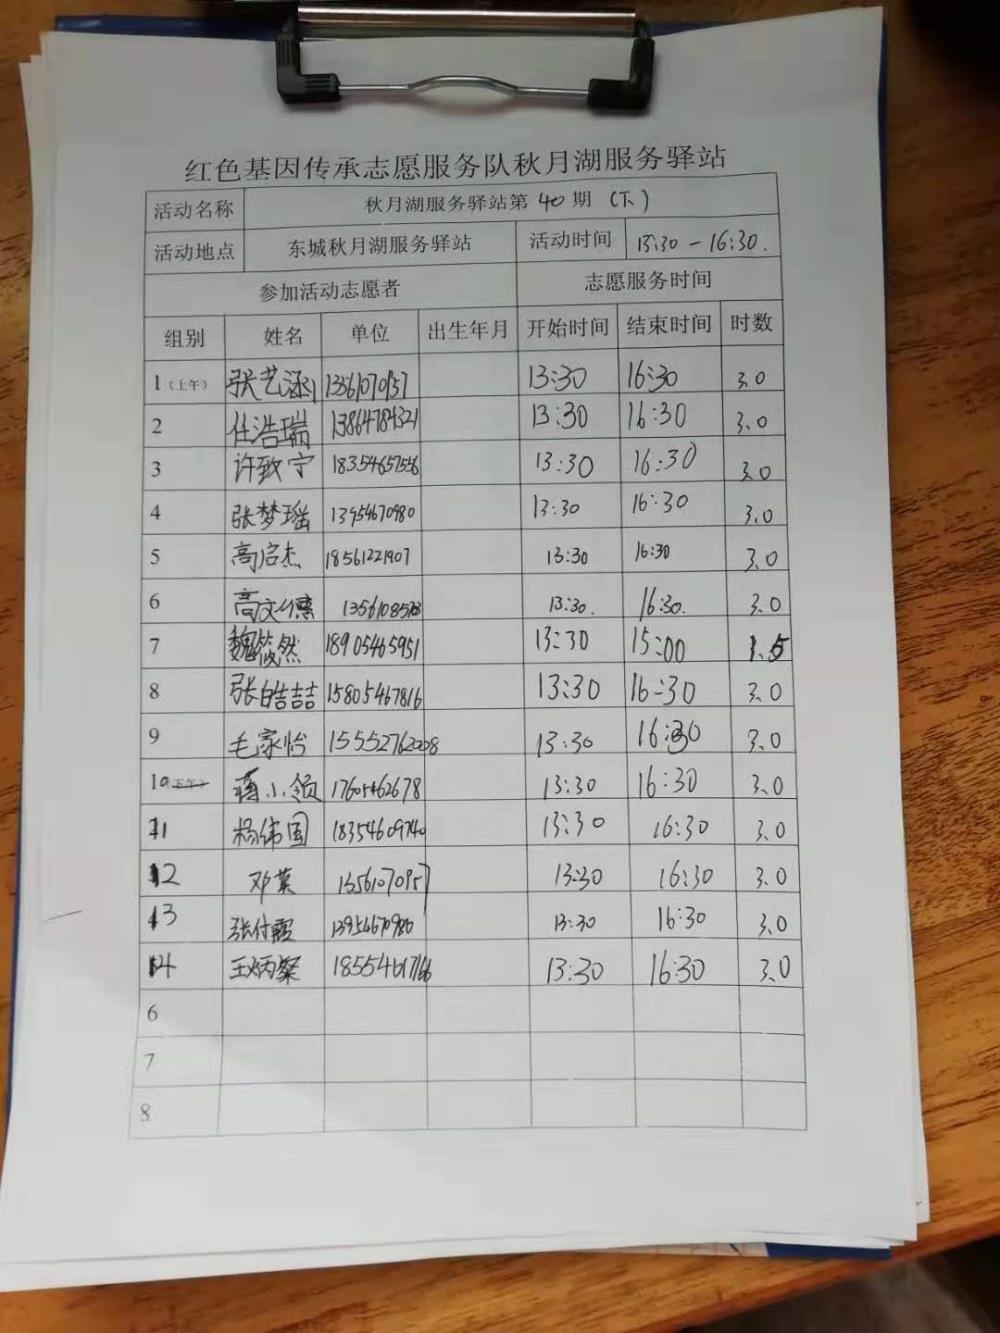 红色基因传承志愿服务队秋月湖服务驿站
活动名称 秋月湖服务驿站第 40 期 (下)
活动地点 东城秋月湖服务驿站 活动时间 13:30-16:30.
参加活动志愿者 志愿服务时间
组别 姓名 单位 出生年月 开始时间 结束时间 时数
1(上午) 张艺涵 13561070957 13:30 16:30 3.0
2 任浩瑞 13864784321 13:30 16:30 3.0
3 许致宁 18354657556 13:30 16:30 3.0
4 张梦瑶 13954670980 13:30 16:30 3.0
5 高启杰 18561221907 13:30 16:30 3.0
6 高文 13:30. 16:30. 3.0
7 魏筱然 18905465951 13:30 15:00 1.5
8 张皓喆 15805467816 13:30 16:30 3.0
9 毛家怡 15552762008 13:30 16:30 3.0
10 蒋小领 17605462678 13:30 16:30 3.0
11 杨伟国 18354609740 13:30 16:30 3.0
12 邓蕊 13561070957 13:30 16:30 3.0
13 张付霞 13954670980 13:30 16:30 3.0
14 王炳粲 18554617166 13:30 16:30 3.0
6
7
8